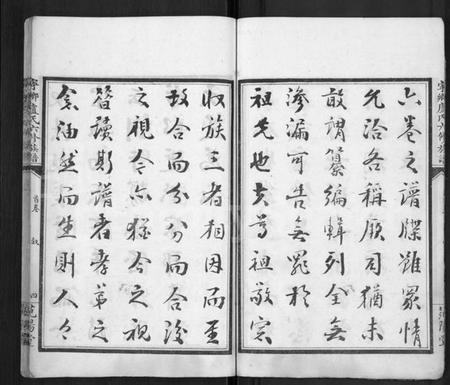 六卷之譜牒雖眾情
允洽各稱厥司猶未
敢謂纂編輯列全無
滲漏可告無罪於
祖先也夫尊祖敬宗
收族三者相因而至
故合而分分而合後
之視今亦猶今之視
昔讀斯譜者孝弟之
念油然而生則人人
首卷 敘
四